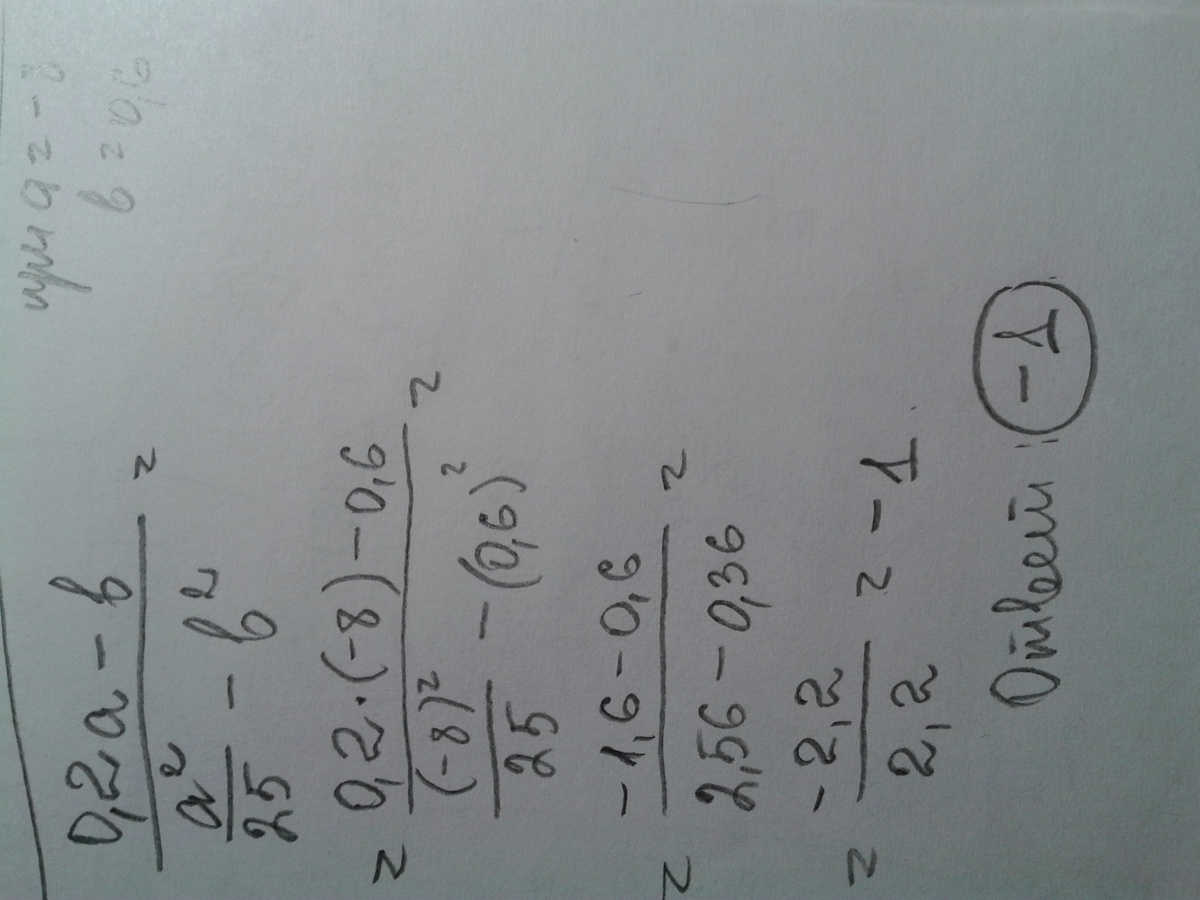 при a = -8
b = 0,6
0,2a - b =
a²
25 - b²
= 0,2·(-8) - 0,6 =
(-8)²
25 - (0,6)²
= -1,6 - 0,6 =
2,56 - 0,36
= -2,2 = -1.
2,2
Ответ: -1